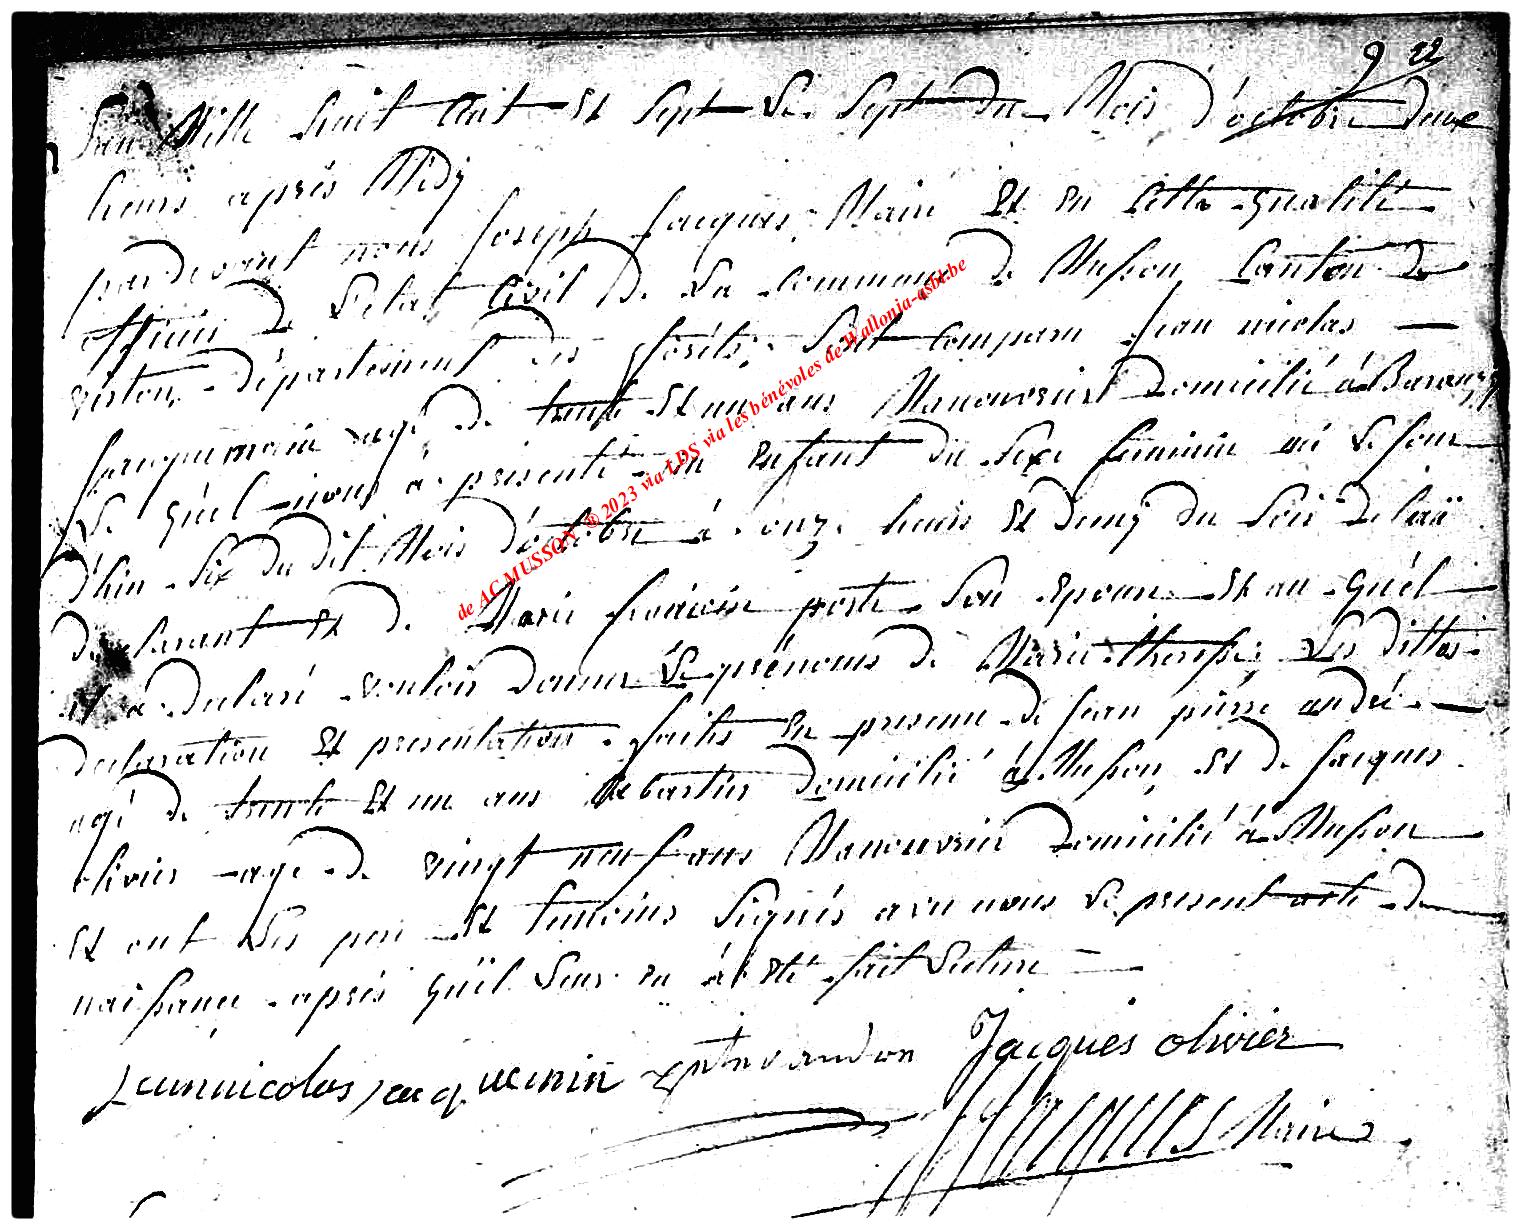 9 22
L'an Mille huit Cent Et Sept Le Sept du Mois d'octobre deux
heures après Midy
pardevant nous Joseph Jacques, Maire Et En Cette qualité
officier de L'etat Civil de La Commune de Musson, Canton de
virton, département des forêts, Est comparu Jean nicolas
Jacquemain agé de trente Et un ans Manouvrier Domicilié à Baranzy
Le quel nous à présenté un Enfant du Sexe feminin né Le Jour
d'hier Six du dit Mois d'octobre à onze heures Et demy du Soir de lui
declarant Et de Marie françoise poste Son Epouse Et au quél
il à declaré vouloir donner Le prénoms de Marie therese, Les dittes
declaration Et presentation faites En presence de Jean pierre andré
agé de trente Et un ans Domicilié à Musson, Et de Jacques
olivier agé de vingt neuf ans Manouvrier Domicilié à Musson
Et ont Les pere Et temoins Signés avec nous Le present acte de
naissance après qu'il Leur En à Eté fait Lecture
Jeannicolas jacquemin Jacques olivier
Maire
de AC MUSSON © 2023 via LDS via les bénévoles de Wallonia-asbl.be